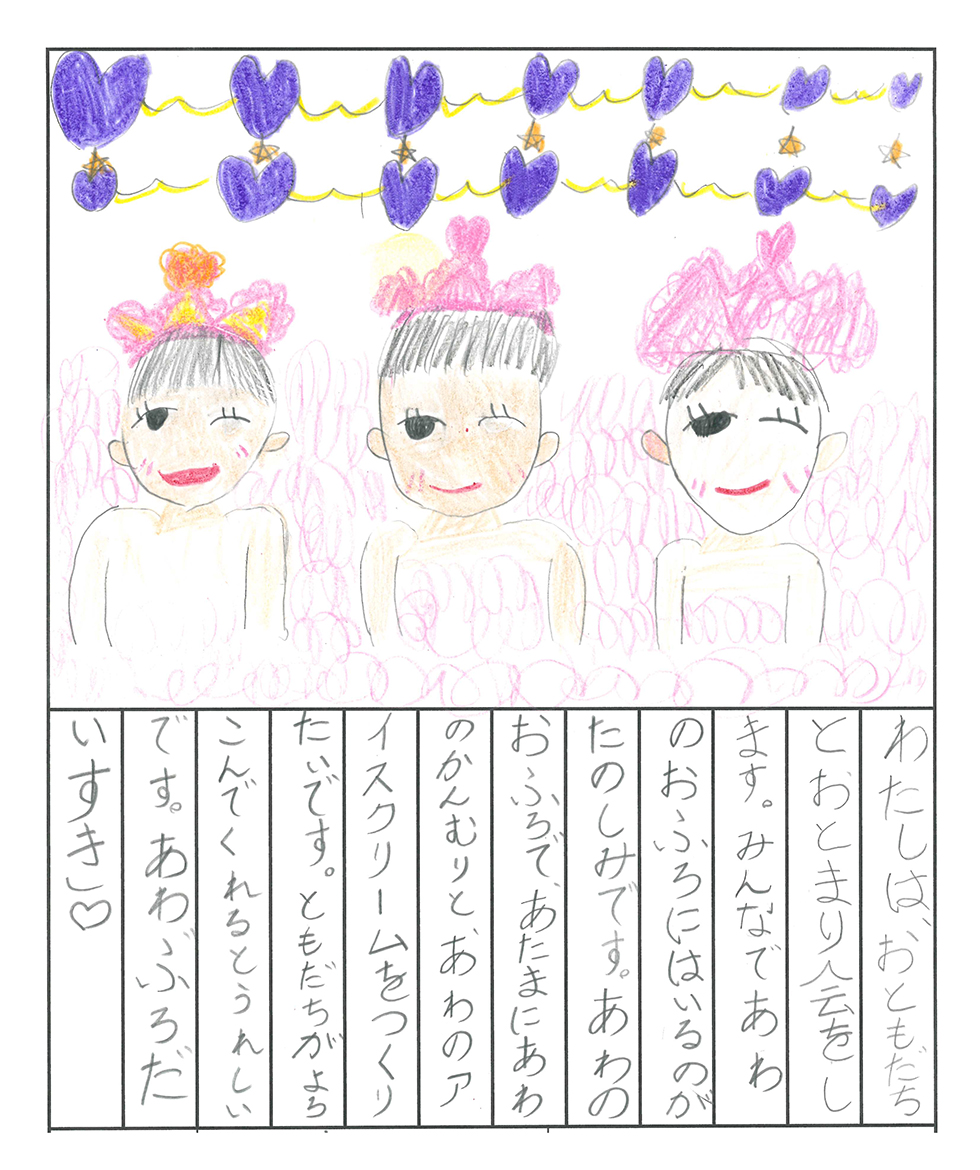 わたしは、おともだち
とおとまり会をし
ます。みんなであわ
のおふろにはいるのが
たのしみです。あわの
おふろで、あたまにあわ
のかんむりと、あわのア
イスクリームをつくり
たいです。ともだちがよろ
こんでくれるとうれしい
です。あわぶろだ
いすき」♡